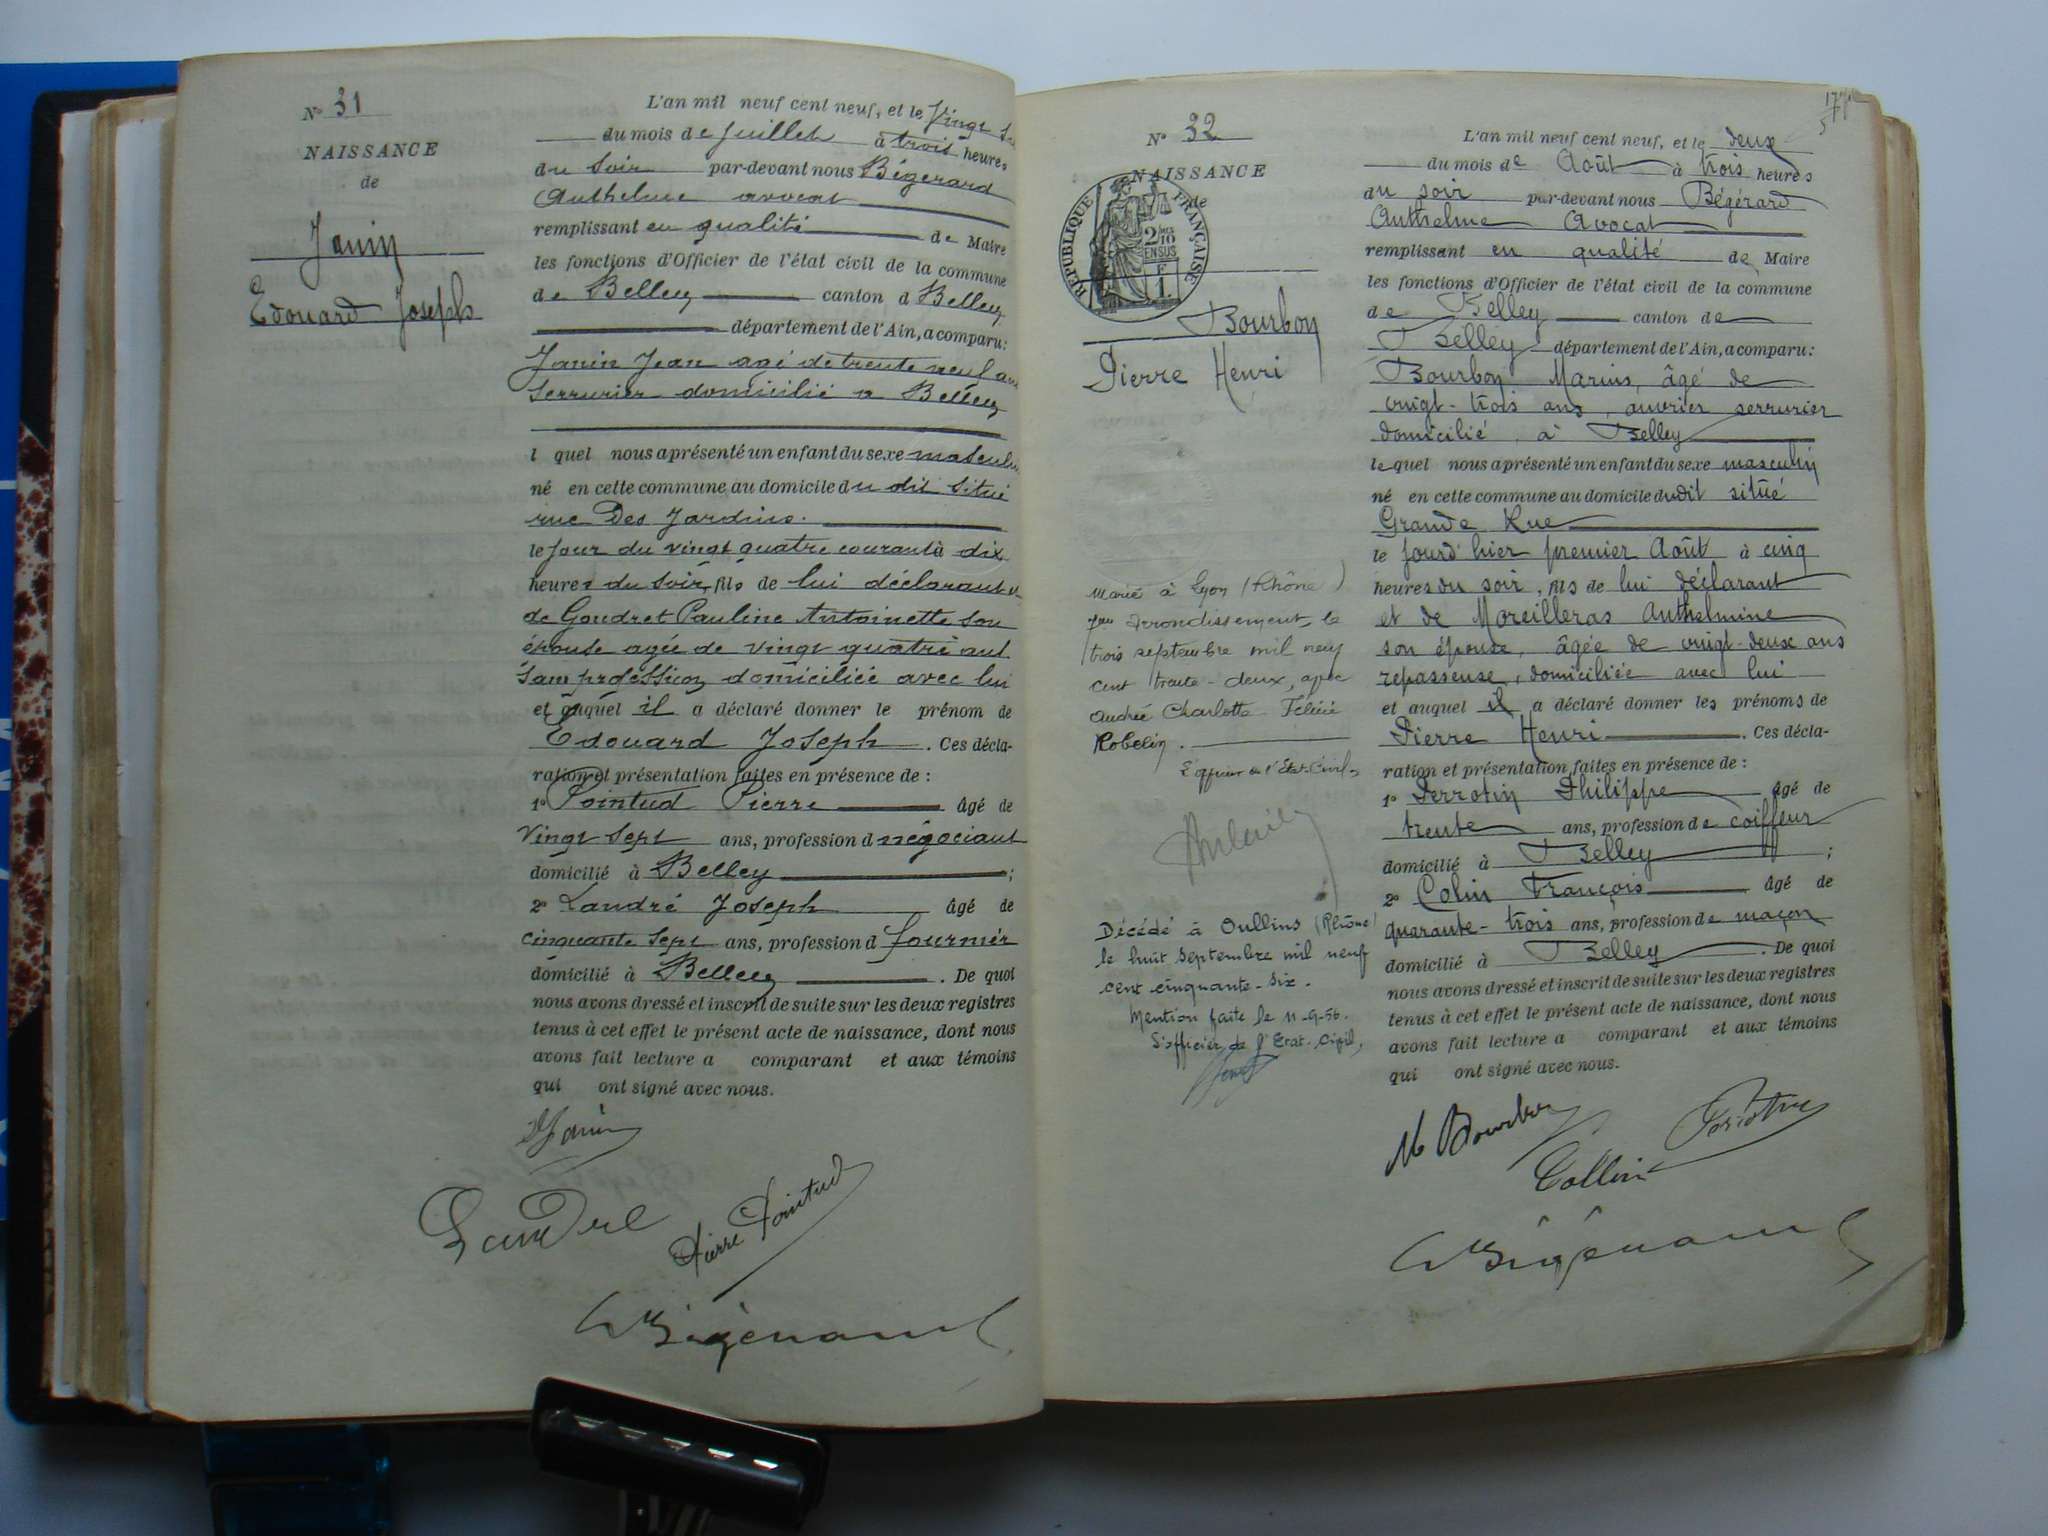 N° 31
NAISSANCE
de
Janin
Edouard Joseph
L'an mil neuf cent neuf, et le Vingt
du mois de Juillet à trois heures
du soir par-devant nous Bégerard
Anthelme avocat
remplissant en qualité de Maire
les fonctions d'Officier de l'état civil de la commune
de Belley canton d Belley
département de l'Ain, a comparu:
Janin Jean agé de trente neuf ans
Serrurier domicilié a Belley
l quel nous a présenté un enfant du sexe masculin
né en cette commune au domicile du dit situé
rue Des Jardins.
le jour du vingt quatre courant à dix
heures du soir, fils de lui déclarant &
de Goudret Pauline Antoinette son
épouse agée de vingt quatre ans
sans profession domiciliée avec lui
et auquel il a déclaré donner le prénom de
Edouard Joseph. Ces décla-
ration et présentation faites en présence de :
1° Pointud Pierre âgé de
vingt sept ans, profession d négociant
domicilié à Belley ;
2° Landré Joseph âgé de
cinquante sept ans, profession d fournier
domicilié à Belley. De quoi
nous avons dressé et inscrit de suite sur les deux registres
tenus à cet effet le présent acte de naissance, dont nous
avons fait lecture a comparant et aux témoins
qui ont signé avec nous.
Janin
Landré
Pierre Pointud
Bégérard
N° 32
NAISSANCE
de
RÉPUBLIQUE FRANÇAISE
2/10
EN SUS
1 F
Bourbon
Pierre Henri
Marié à Lyon (Rhône)
7me arrondissement, le
trois septembre mil neuf
cent trente-deux, avec
Andrée Charlotte Félicie
Robelin.
L'officier de l'Etat-Civil,
Décédé à Oullins (Rhône)
le huit septembre mil neuf
cent cinquante-six.
Mention faite le 11-9-56.
L'officier de l'Etat-Civil,
L'an mil neuf cent neuf, et le deux
du mois de Août à trois heures
du soir par-devant nous Bégérard
Anthelme Avocat
remplissant en qualité de Maire
les fonctions d'Officier de l'état civil de la commune
de Belley canton de
Belley département de l'Ain, a comparu:
Bourbon Marius, âgé de
vingt-trois ans, ouvrier serrurier
domicilié à Belley
lequel nous a présenté un enfant du sexe masculin
né en cette commune au domicile dudit situé
Grande Rue
le jourd'hier premier Août à cinq
heures du soir, fils de lui déclarant
et de Moreilleras Anthelmine
son épouse, âgée de vingt-deux ans
repasseuse, domiciliée avec lui
et auquel il a déclaré donner les prénoms de
Pierre Henri. Ces décla-
ration et présentation faites en présence de :
1° Perrotin Philippe âgé de
trente ans, profession de coiffeur
domicilié à Belley ;
2° Colin François âgé de
quarante-trois ans, profession de maçon
domicilié à Belley. De quoi
nous avons dressé et inscrit de suite sur les deux registres
tenus à cet effet le présent acte de naissance, dont nous
avons fait lecture a comparant et aux témoins
qui ont signé avec nous.
M Bourbon
Collin
Bégérard